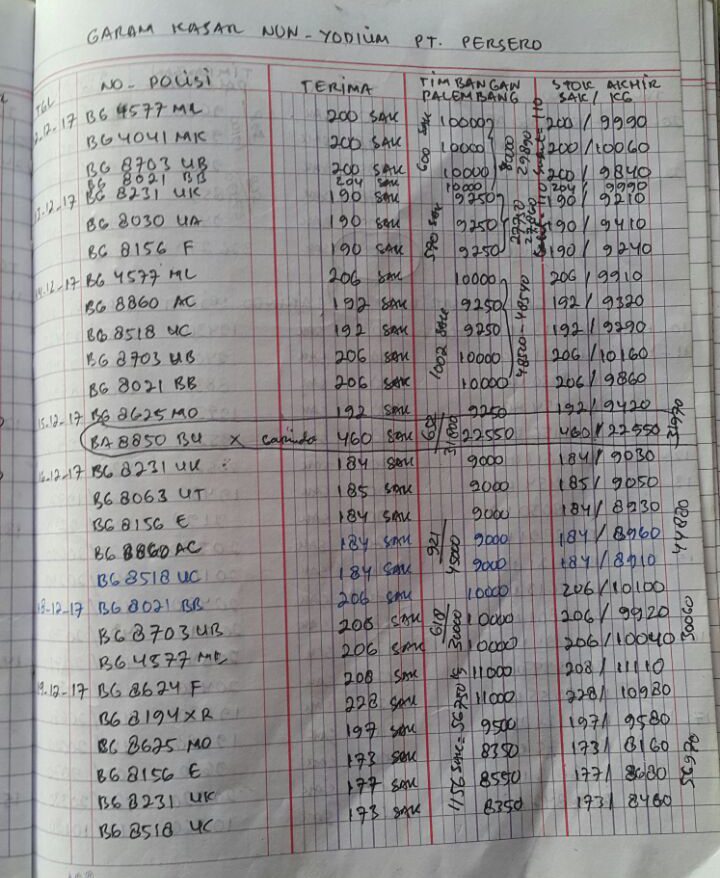 GARAM KASAR NON-YODIUM PT. PERSERO
TGL NO-POLISI TERIMA TIMBANGAN PALEMBANG STOK AKHIR SAK/KG
2.12.17 BG 4577 ML 200 SAK 10000 200/9990
BG 4041 MK 200 SAK 10000 200/10060
BG 8703 UB 200 SAK 10000 200/9840
BG 8021 BB 204 SAK 10000 204/9990
13.12-17 BG 8231 UK 190 SAK 9250 190/9210
BG 8030 UA 190 SAK 9250 190/9410
BG 8156 F 190 SAK 9250 190/9240
14.12-17 BG 4577 ML 206 SAK 10000 206/9910
BG 8860 AC 192 SAK 9250 192/9320
BG 8518 UC 192 SAK 9250 192/9290
BG 8703 UB 206 SAK 10000 206/10160
BG 8021 BB 206 SAK 10000 206/9860
15.12-17 BG 8625 MO 192 SAK 9250 192/9420
BA 8850 BU X 460 SAK 22550 460/22550
16.12-17 BG 8231 UK 184 SAK 9000 184/9030
BG 8063 UT 185 SAK 9000 185/9050
BG 8156 E 184 SAK 9000 184/8930
BG 8860 AC 184 SAK 9000 184/8960
BG 8518 UC 184 SAK 9000 184/8910
18-12-17 BG 8021 BB 206 SAK 10000 206/10100
BG 8703 UB 206 SAK 10000 206/9920
BG 4577 ML 206 SAK 10000 206/10040
19.12-17 BG 8624 F 208 SAK 11000 208/11110
BG 8194 XR 228 SAK 11000 228/10980
BG 8625 MO 197 SAK 9500 197/9580
BG 8156 E 173 SAK 8350 173/8160
BG 8231 UK 177 SAK 8550 177/8680
BG 8518 UC 173 SAK 8350 173/8460
600 SAK
29890
1002 SAK
48500-48540
31800
31970
921
45000
44880
618
30000
30060
1156 SAK = 56750
56970